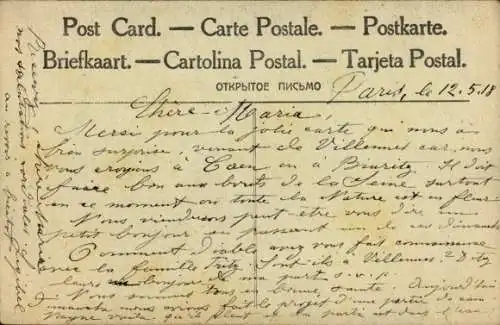 Post Card. — Carte Postale. — Postkarte.
Briefkaart. — Cartolina Postal. — Tarjeta Postal.
ОТКРЫТОЕ ПИСЬМО
Paris, le 12.5.18
Chère Maria,
Merci pour la jolie carte qui nous a
bien surprise, venant de Villennes car nous
vous croyons à Caen ou à Biarritz. Il doit
faire bon aux bords de la Seine surtout
en ce moment où toute la Nature est en fleur
Nous viendrons peut être vous dire un
petit bonjour en passant un de ces dimanches
Comment diable avez vous fait connaissance
avec la famille Fritz. Sont ils à Villennes? Dites
leurs bonjour de ma part s.v.p.
Nous sommes tous en bonne santé. Aujourd'hui
dimanche nous avions fait le projet d'une partie de
voilà
Recevez
nos salutations cordiales
au revoir à bientôt